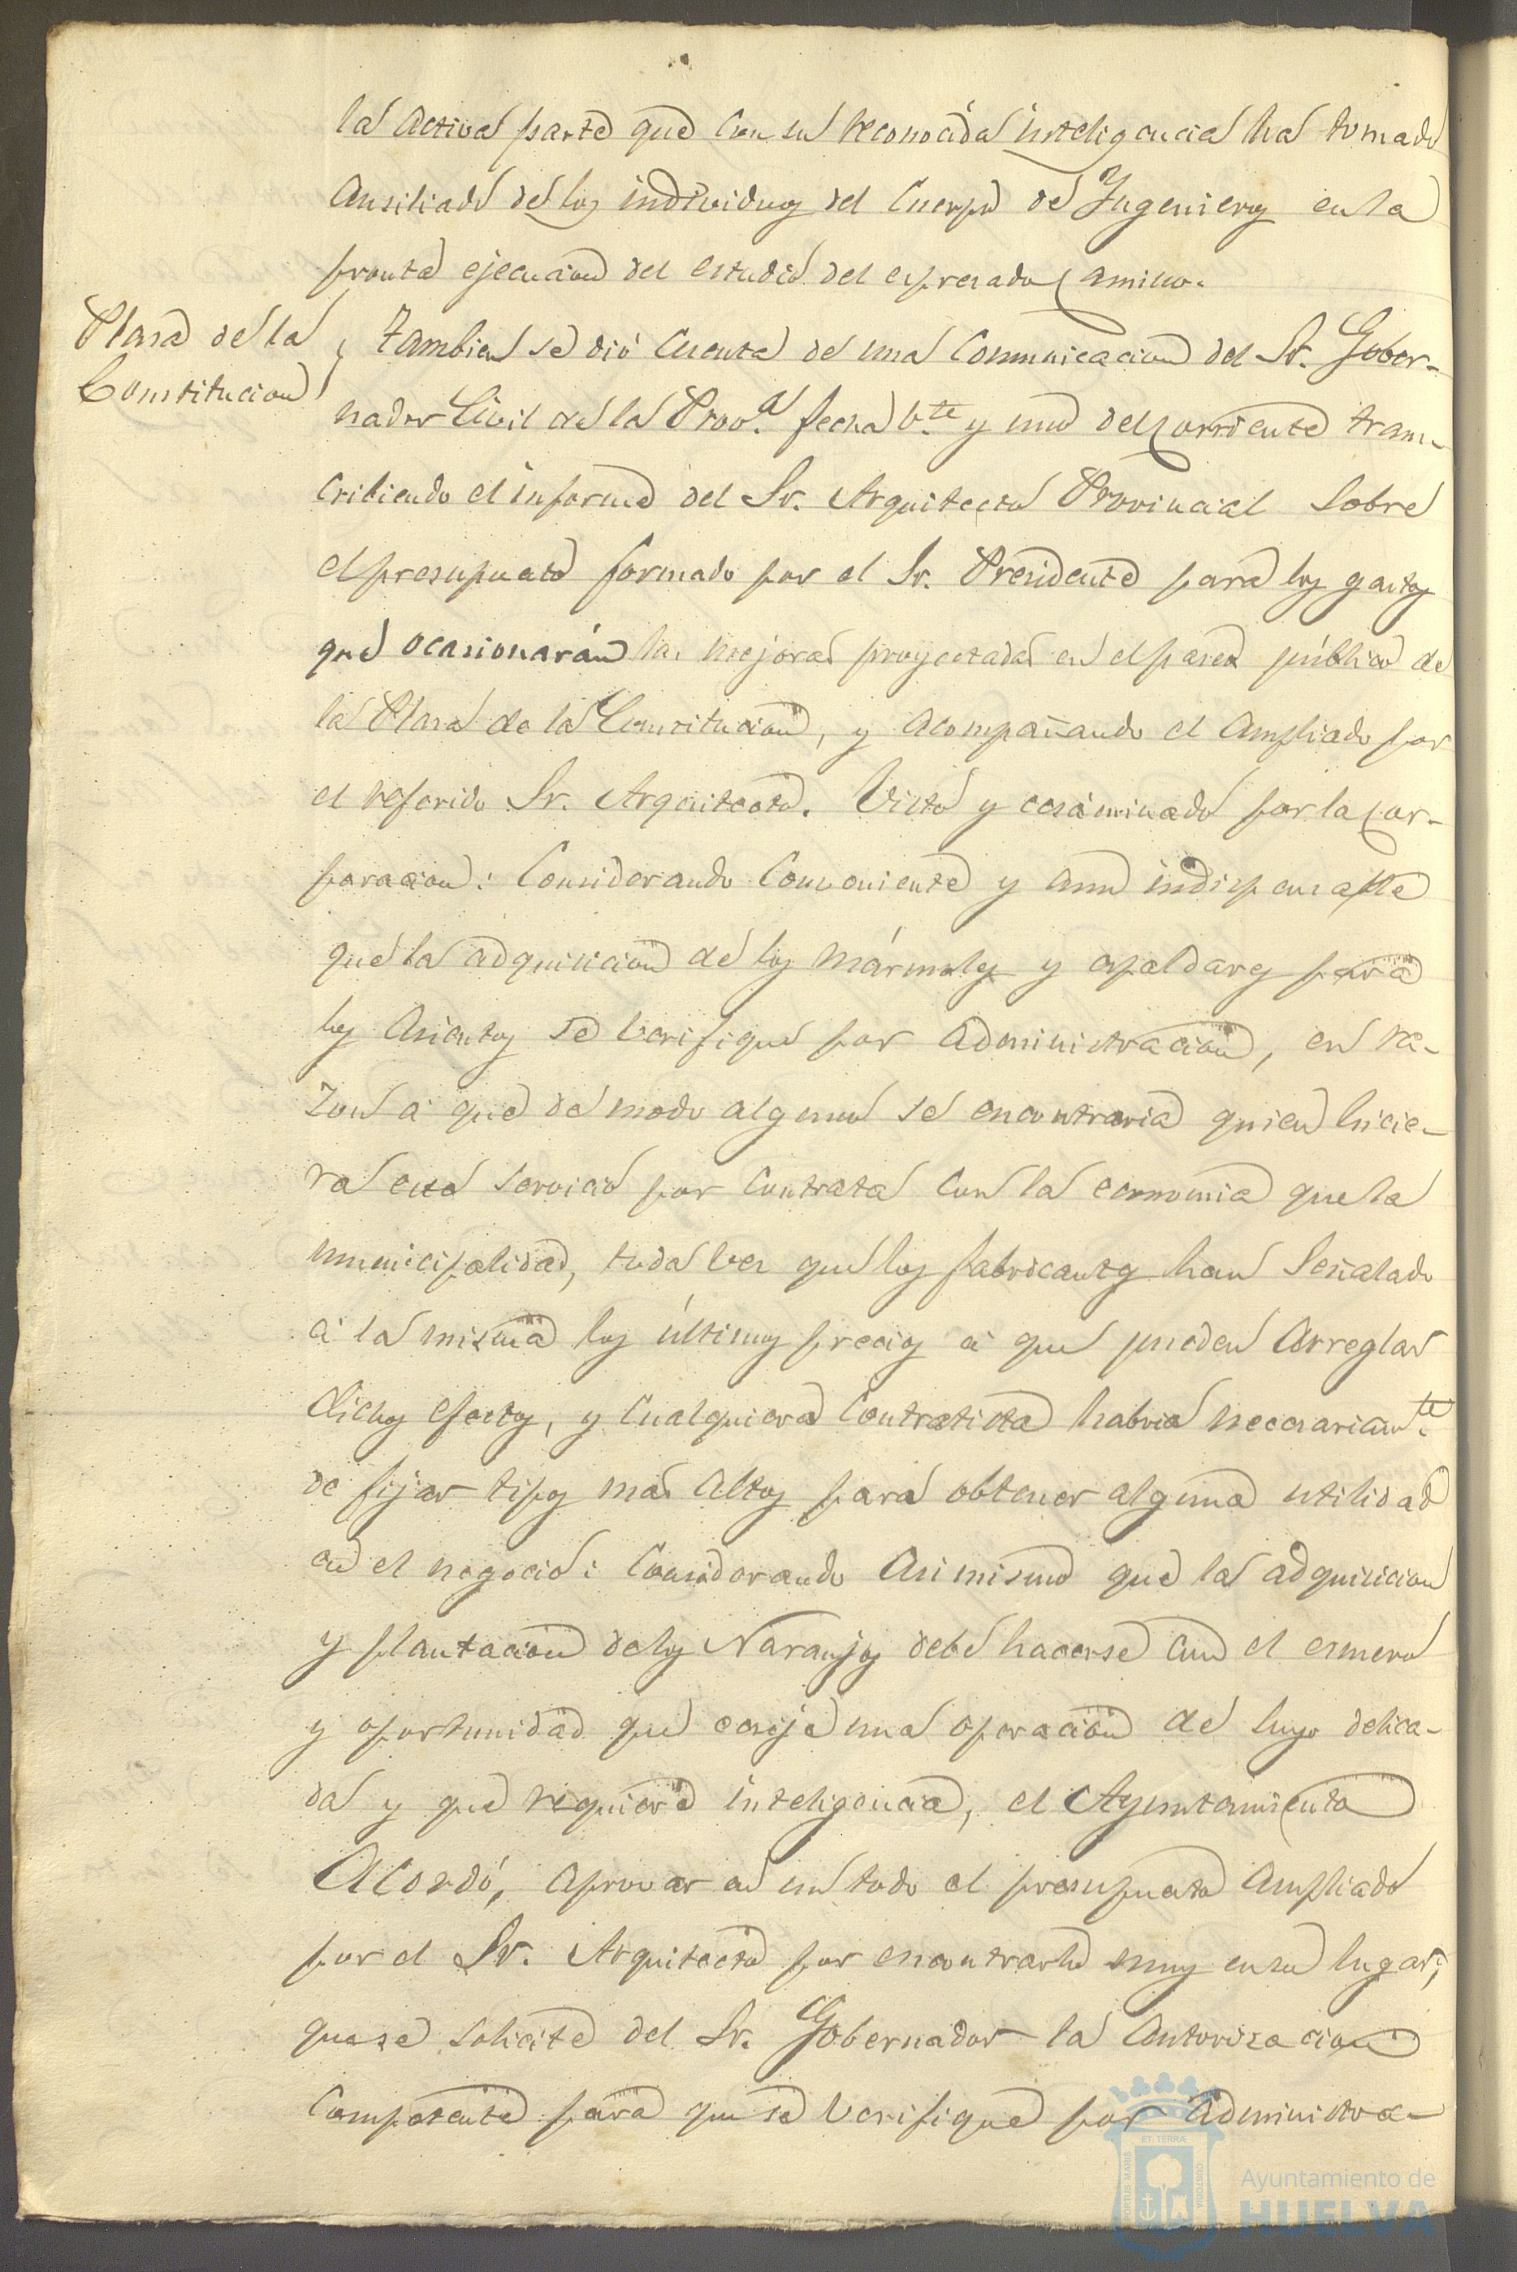 la activa parte que con su reconocida inteligencia ha tomado
ausiliado de los individuos del Cuerpo de Ingenieros en la
pronta ejecucion del estudio del espresado camino.
Plasa de la
Constitucion
Tambien se dió cuenta de una comunicacion del Sr. Gober-
nador Civil de la Prov.a fecha v.te y uno del corriente trans-
cribiendo el informe del Sr. Arquitecto Provincial sobre
el presupuesto formado por el Sr. Presidente para los gastos
que ocasionarán las mejoras proyectadas en el paseo público de
la Plasa de la Constitucion, y acompañando el ampliado por
el referido Sr. Arquitecto. Visto y ecsaminado por la Cor-
poracion: Considerando conveniente y aun indispensable
que la adquisicion de los mármoles y espaldares para
los asientos se verifique por administracion, en ra-
zon á que de modo alguno se encontraria quien hicie-
ra este servicio por contrata con la economia que la
municipalidad, toda ves que los fabricantes han señalado
á la misma los últimos precios á que pueden arreglar
dichos efectos, y cualquiera contratista habria necesariam.te
de fijar tipos mas altos para obtener alguna utilidad
en el negocio: Considerando asi mismo que la adquisicion
y plantacion de los Naranjos debe hacerse con el esmero
y oportunidad que ecsije una operacion de suyo delica-
da y que requiere inteligencia, el Ayuntamiento
Acordó, aprovar en un todo el presupuesto ampliado
por el Sr. Arquitecto por encontrarlo muy en su lugar;
que se solicite del Sr. Gobernador la autorizacion
competente para que se verifique por administra-
Ayuntamiento de
HUELVA